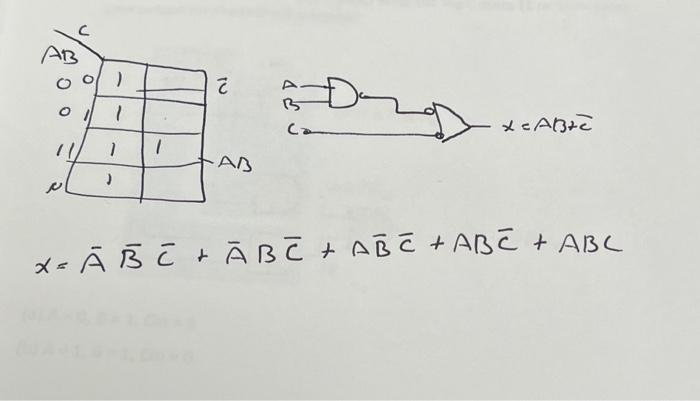 C
AB
0 0 1 C̅
0 1 1
11 1 1 AB
1
A
B
C
x = AB+C̅
x = A̅ B̅ C̅ + A̅ B C̅ + A B̅ C̅ + A B C̅ + A B C